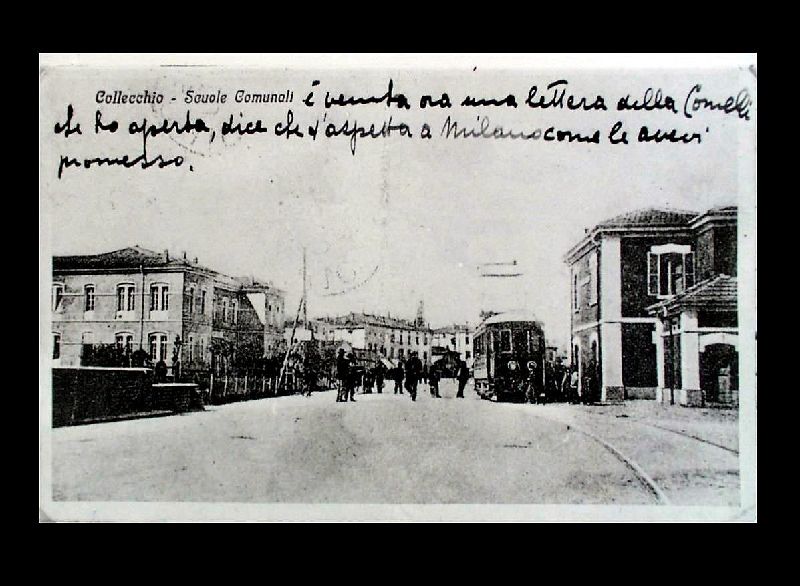 Collecchio - Scuole Comunali è venuta ora una lettera della Comelli
che ho aperta, dice che t'aspetta a Milano come le avevi
promesso.